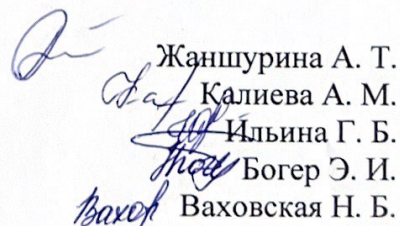 Жаншурина А. Т.
Калиева А. М.
Ильина Г. Б.
Богер Э. И.
Вахор Ваховская Н. Б.